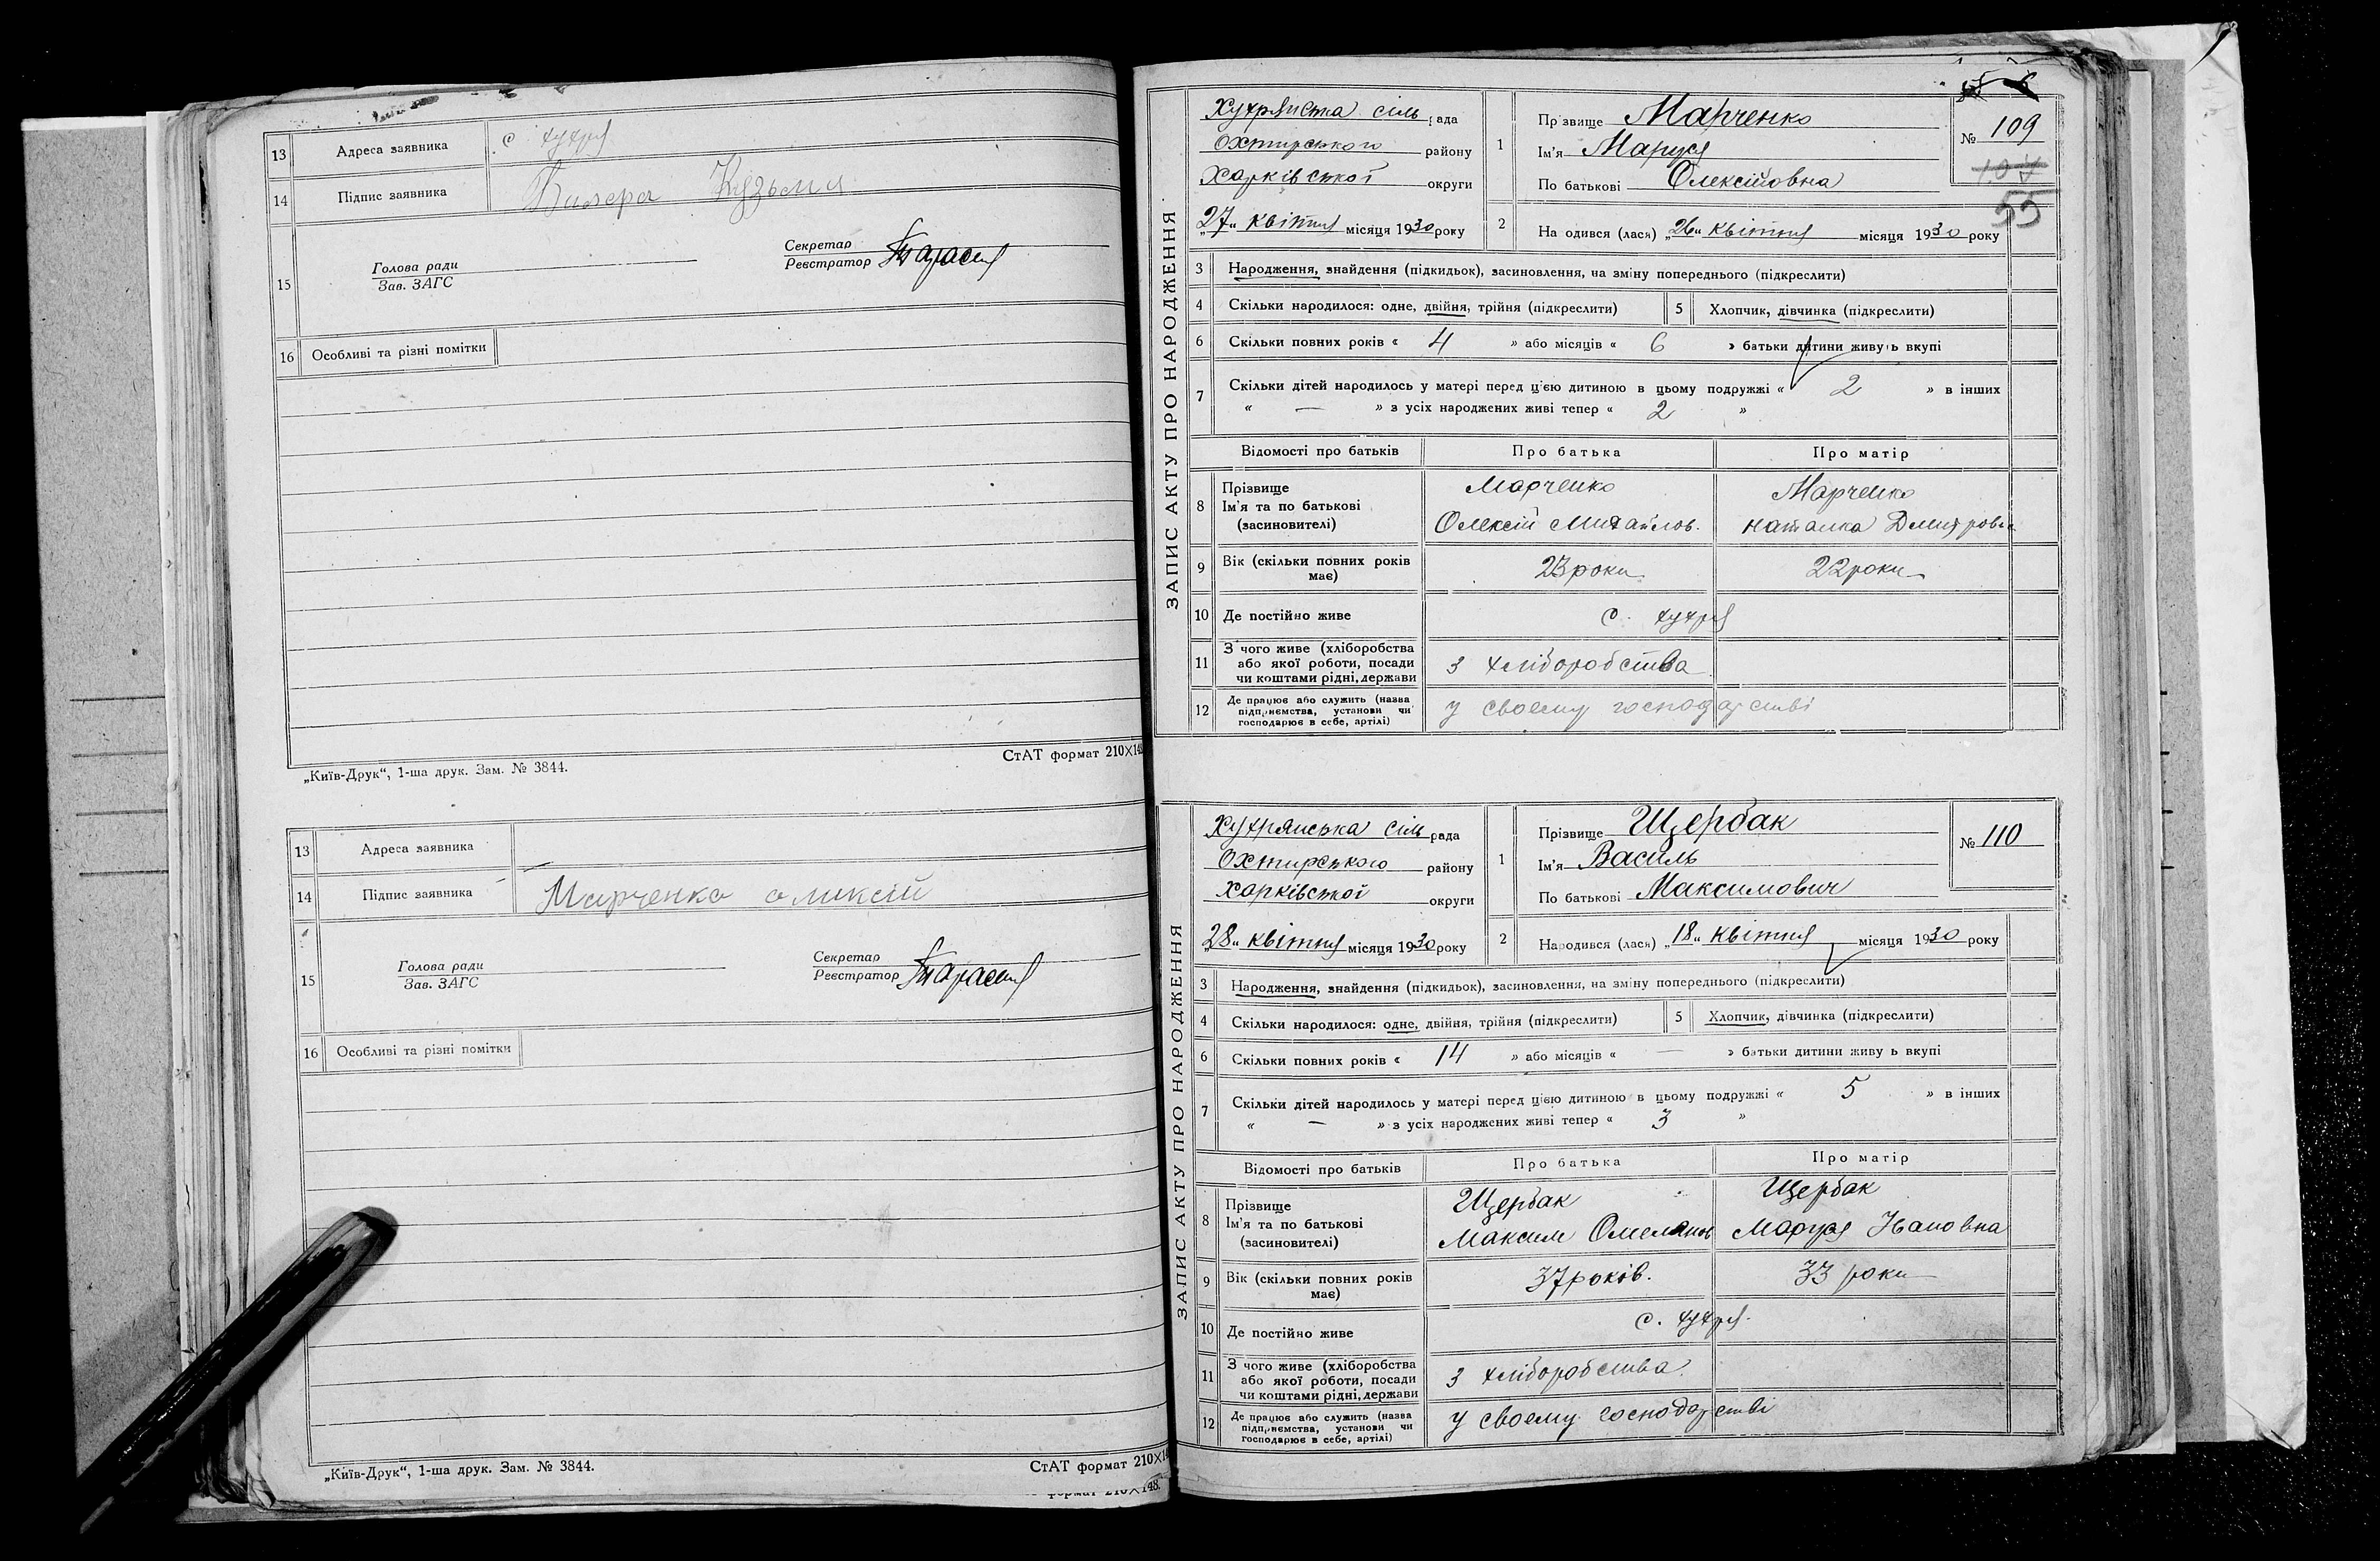 13 Адреса заявника с. хухря
14 Підпис заявника Кузьма
15 Голова ради
Зав. ЗАГС
Секретар
Реєстратор
16 Особливі та різні помітки
„Київ-Друк“, 1-ша друк. Зам. № 3844.
СтАТ формат 210×148
13 Адреса заявника —
14 Підпис заявника Марченко оликсій
15 Голова ради
Зав. ЗАГС
Секретар
Реєстратор
16 Особливі та різні помітки
„Київ-Друк“, 1-ша друк. Зам. № 3844.
СтАТ формат 210×14
формат 210×148.
ЗАПИС АКТУ ПРО НАРОДЖЕННЯ
Хухрянська сіль рада
Охтирського району
Харківської округи
„27“ квітня місяця 1930 року
1 Прізвище Марченко
Ім'я Маруся
По батькові Олексійовна
№ 109
107
55
2 Народився (лася) „26“ квітня місяця 1930 року
3 Народження, знайдення (підкидьок), засиновлення, на зміну попереднього (підкреслити)
4 Скільки народилося: одне, двійня, трійня (підкреслити) 5 Хлопчик, дівчинка (підкреслити)
6 Скільки повних років « 4 » або місяців « 6 » батьки дитини живуть вкупі
7 Скільки дітей народилось у матері перед цією дитиною в цьому подружжі « 2 » в інших
« — » з усіх народжених живі тепер « 2 »
Відомості про батьків Про батька Про матір
8 Прізвище Марченко Марченко
Ім'я та по батькові Олексій Михайлов. Наталка Дмитровна
(засиновителі)
9 Вік (скільки повних років 23 роки 22 роки
має)
10 Де постійно живе с. хухря
11 З чого живе (хліборобства
або якої роботи, посади з хліборобства
чи коштами рідні, держави
12 Де працює або служить (назва
підприємства, установи чи у своему господарстві
господарює в себе, артілі)
ЗАПИС АКТУ ПРО НАРОДЖЕННЯ
Хухрянська сіль рада
Охтирського району
Харківської округи
„28“ квітня місяця 1930 року
1 Прізвище Щербак
Ім'я Василь
По батькові Максимович
№ 110
2 Народився (лася) „18“ квітня місяця 1930 року
3 Народження, знайдення (підкидьок), засиновлення, на зміну попереднього (підкреслити)
4 Скільки народилося: одне, двійня, трійня (підкреслити) 5 Хлопчик, дівчинка (підкреслити)
6 Скільки повних років « 14 » або місяців « — » батьки дитини живу ь вкупі
7 Скільки дітей народилось у матері перед цією дитиною в цьому подружжі « 5 » в інших
« — » з усіх народжених живі тепер « 3 »
Відомості про батьків Про батька Про матір
8 Прізвище Щербак Щербак
Ім'я та по батькові Максим Омелянов Маруся Івановна
(засиновителі)
9 Вік (скільки повних років 37 років. 33 роки
має)
10 Де постійно живе с. хухря.
11 З чого живе (хліборобства
або якої роботи, посади з хліборобства.
чи коштами рідні, держави
12 Де працює або служить (назва
підприємства, установи чи у своему господарстві
господарює в себе, артілі)